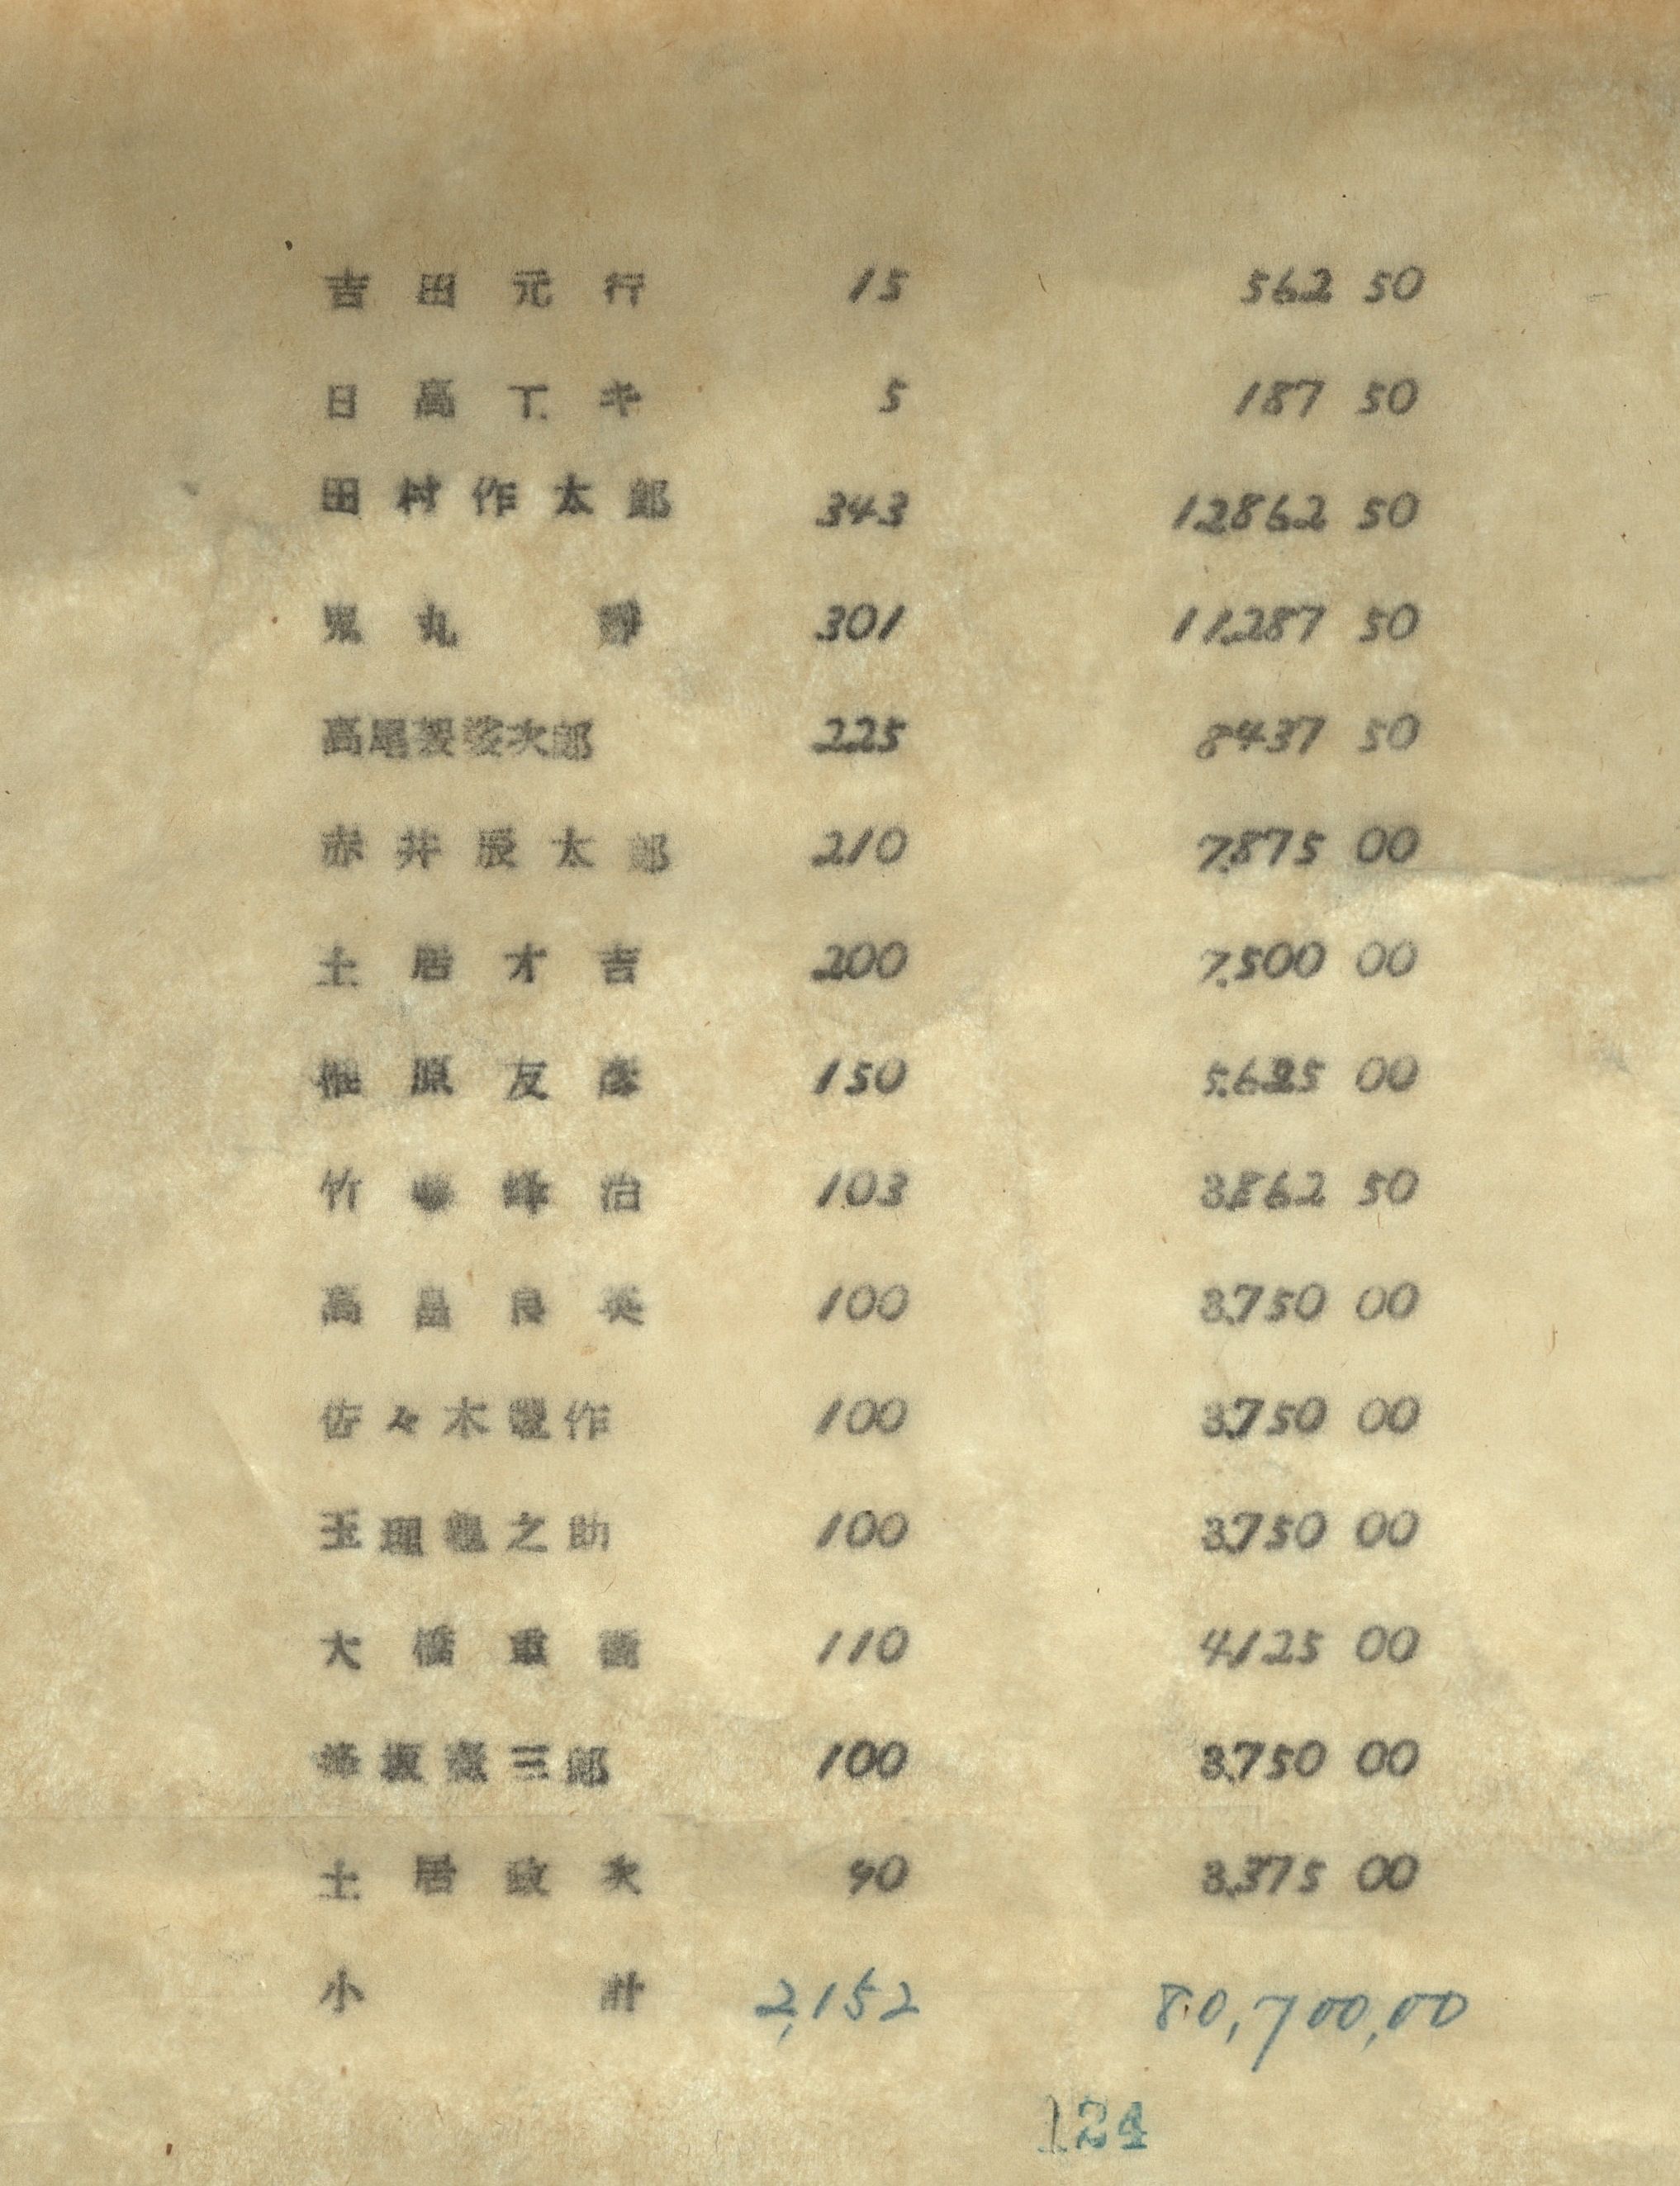 吉田元行 15 562 50
日高丁キ 5 187 50
田村作太郎 343 12862 50
鬼丸 静 301 11.287 50
高尾袈裟次郎 225 8437 50
赤井辰太郎 210 7.875 00
土居才吉 200 7.500 00
原友彦 150 5.625 00
竹 峰治 103 3.862 50
高 良英 100 3.750 00
佐々木 作 100 3.750 00
玉理 之助 100 3.750 00
大橋重 110 4.125 00
坂 三郎 100 3.750 00
土居政次 90 3.375 00
小計 2,152 80,700,00
124